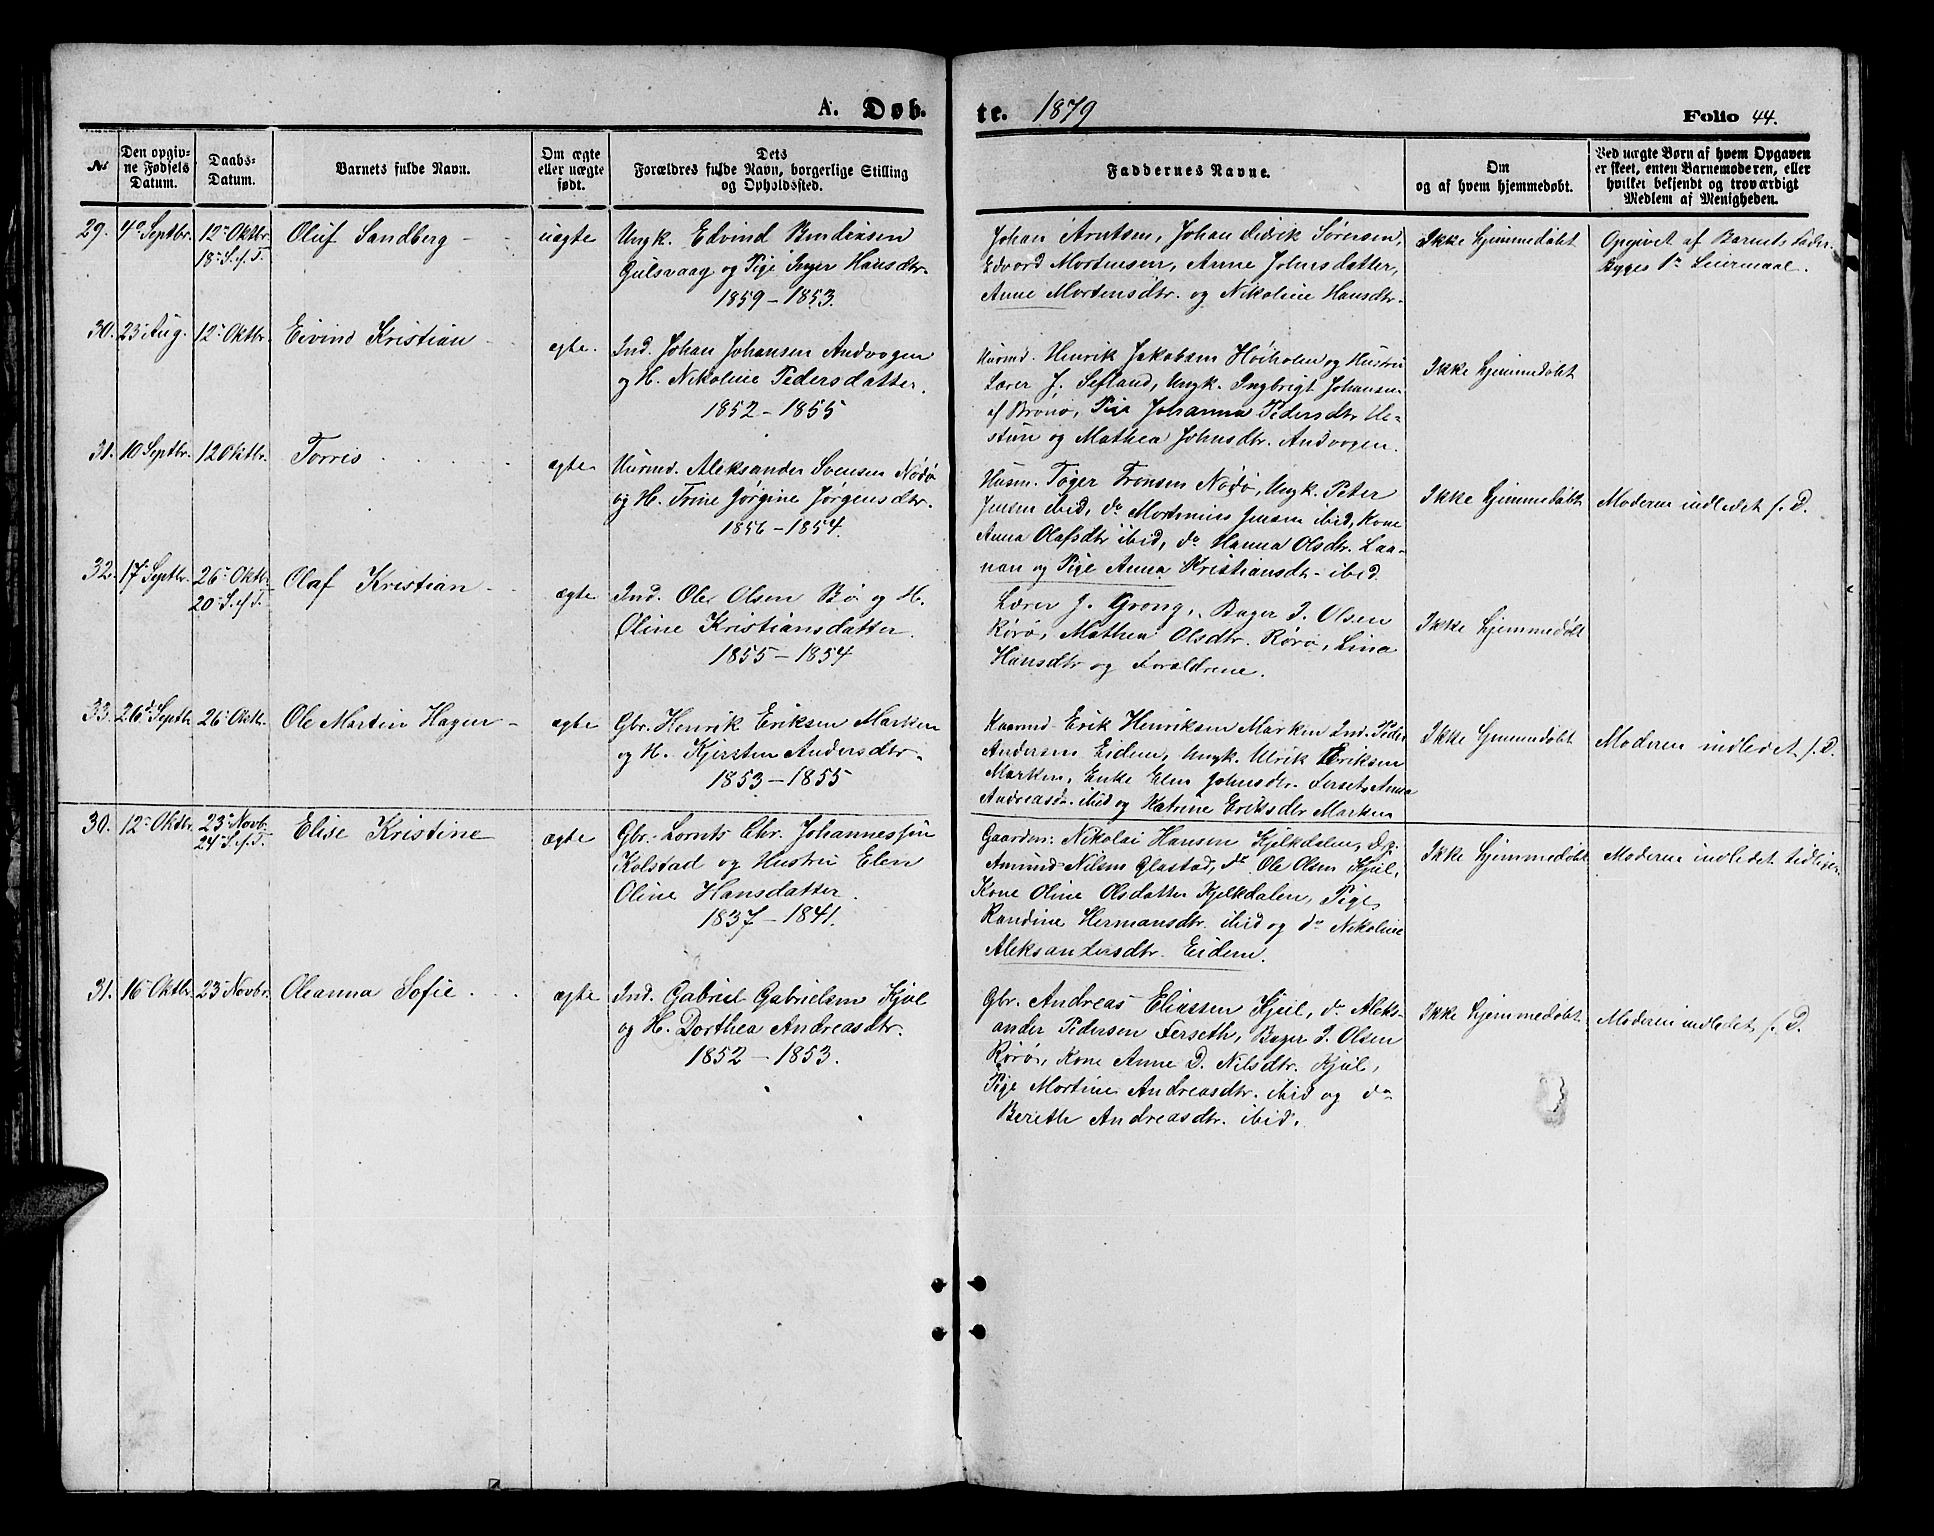 A. Døb.
te. 1879
Folio 44.
No
Den opgiv-
ne Fødsels
Datum.
Daabs-
Datum.
Barnets fulde Navn.
Om ægte
eller uægte
født.
Dets
Forældres fulde Navn, borgerlige Stilling
og Opholdssted.
Faddernes Navne.
Om
og af hvem hjemmedøbt.
Ved uægte Børn af hvem Opgaven
er skeet, enten Barnemoderen, eller
hvilket bekjendt og troværdigt
Medlem af Menigheden.
29. 4de Septbr. 12te Oktbr.
18 S. e. T.
Oluf Sandberg
uægte
Ungk. Edvind
Gulsvaag og Pige Inger Hansdtr.
1859 - 1853.
Johan Arntsen, Johan Didrik Sørensen,
Edvard Mortensen, Anne Johnsdatter,
Anne Mortensdtr. og Nikoline Hansdtr.
Ikke hjemmedøbt
Opgivet af Barnets Fader.
Begges 1ste Leiermaal.
30. 23 Aug. 12te Oktbr.
Eivind Kristian
ægte.
Ind. Johan Johansen Andvogen
og H. Nikoline Pedersdatter.
1852 - 1855
Huusmd. Henrik Jakobsen Høiholm og Hustru
Lærer J. Sefland, Ungk. Ingbrigt Johansen
af Brønø, Pige Johanna Pedersdtr.
og Mathea Johnsdtr. Andvogen.
Ikke hjemmedøbt
31. 10 Septbr. 12 Oktbr.
Torris
ægte
Huusmd. Aleksander Svensen Nødø
og H. Trine Jørgine Jørgensdtr.
1856 - 1854.
Husm. Tøger Tronsen Nødø, Ungk. Peter
Jensen ibid, do Mortinius Jensen ibid, Kone
Anna Olafsdtr ibid, do Hanna Olsdtr. Laa-
nan og Pige Anna Kristiansdtr. ibid.
Ikke hjemmedøbt
Moderen indledet s. D.
32. 17 Septbr. 26te Oktbr.
20 S. e. T.
Olaf Kristian
ægte
Ind. Ole Olsen Bø og H.
Oline Kristiansdatter.
1855 - 1854
Lærer J. Grong, Bager J. Olsen
Rørø, Mathea Olsdtr. Rørø, Lina
Hansdtr og Forældrene.
Ikke hjemmedøbt
33. 26d Septb. 26te Oktb.
Ole Martin Hagen
ægte
Gbr. Henrik Eriksen Marken
og H. Kjersten Andersdtr.
1853 - 1855
Kaarmd. Erik Henriksen Marken Ind. Peder
Andersen Eidem, Ungk. Ulrik Eriksen
Marken, Enke Elen Johnsdtr. Forseth, Anna
Andreasdtr. ibid og Katrine Eriksdtr Marken
Ikke hjemmedøbt
Moderen indledet s. D.
30. 12te Oktbr. 23de Novb.
24de S. e. T.
Elise Kristine
ægte
Gbr. Lornts Chr. Johannessen
Kolstad og Hustru Elen
Oline Hansdatter.
1837 - 1841.
Gaardm: Nikolai Hansen Kjelkdalen,
Amund Nilsen Glastad, do Ole Olsen Kjul,
Kone Oline Olsdatter Kjelkdalen, Pige
Randine Hermansdtr. ibid og do Nikoline
Aleksandersdtr. Eidem.
Ikke hjemmedøbt
Moderen indledet tidligere
31. 16 Oktbr. 23 Novbr.
Oleanna Sofie
ægte
Ind. Gabriel Gabrielsen Kjul
og H. Dorthea Andreasdtr.
1852 - 1853.
Gbr. Andreas Eliassen Kjul, do Aleks-
ander Pedersen Ferseth, Bager J. Olsen
Rørø, Kone Anne D. Nilsdtr. Kjul,
Pige Mortine Andreasdtr. ibid og do
Bereth Andreasdtr. ibid.
Ikke hjemmedøbt
Moderen indledet s. D.